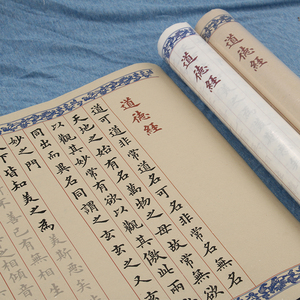 道德經
道德經
道德經
道可道非常道名可名非常名無名
天地之始有名萬物之母故常無欲
以觀其妙常有欲以觀其徼此兩
同出而異名同謂之玄玄之又玄
妙之門
下皆知美之為美斯惡矣
善已有無相生
相傾音